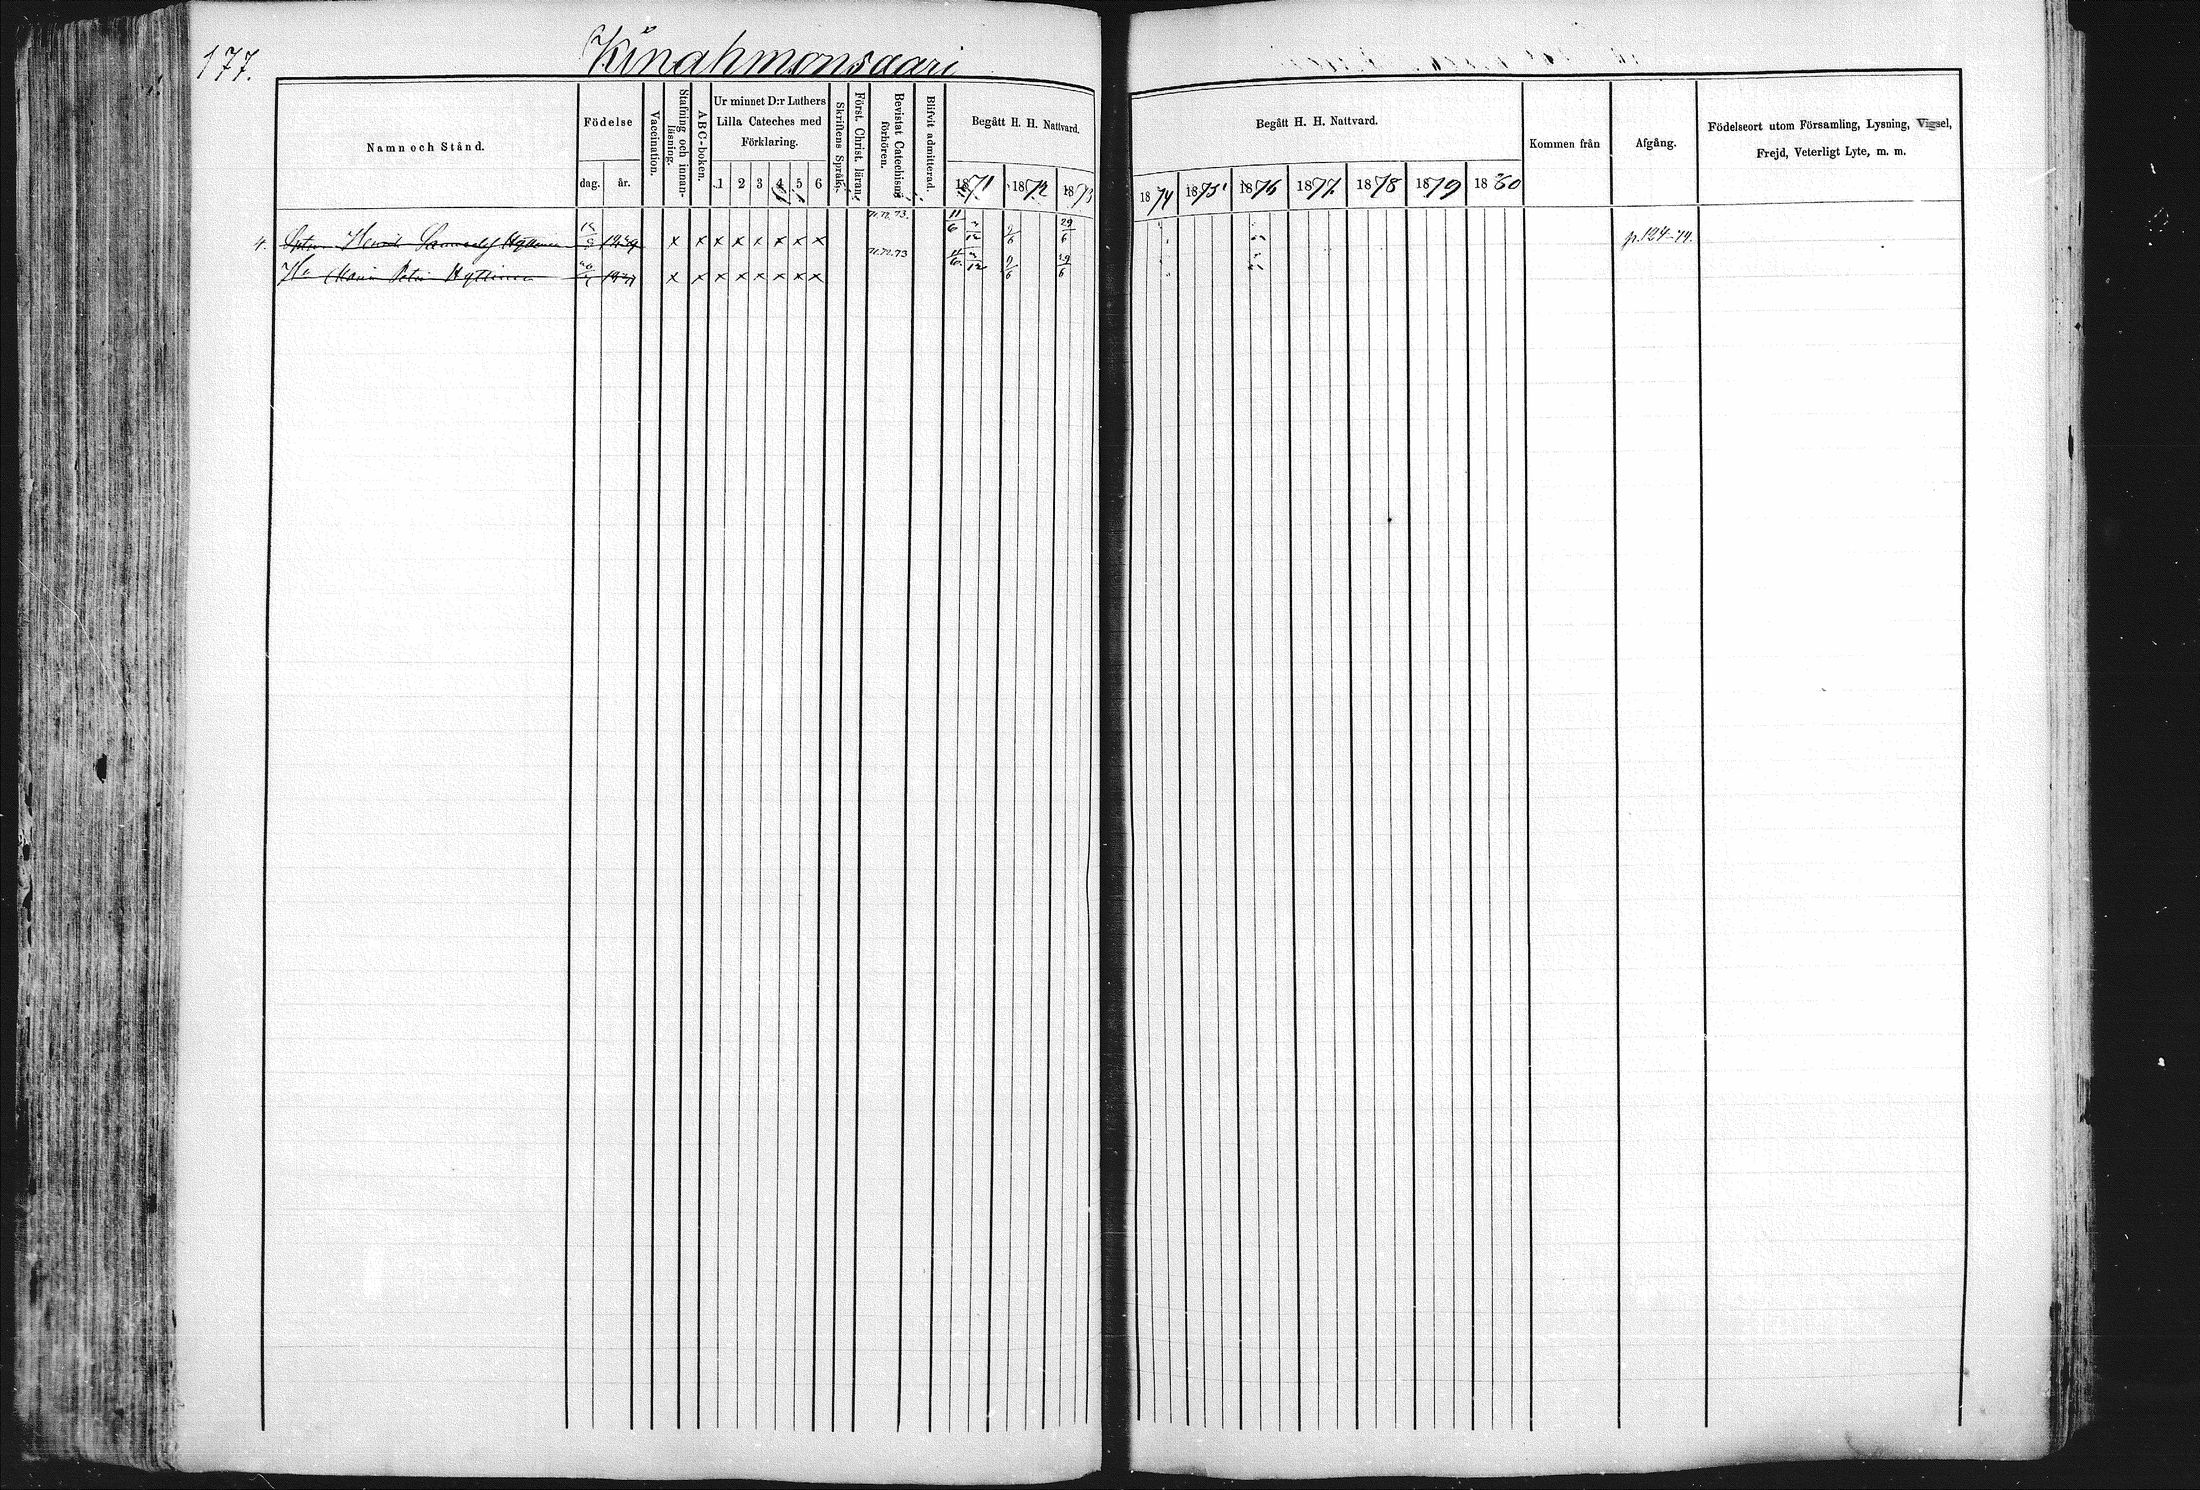 177.
Kinahmonsaari
Namn och Stånd.
Födelse
dag.
år.
Vaccination.
Stafning och innan-
läsning.
ABC-boken.
Ur minnet D:r Luthers
Lilla Cateches med
Förklaring.
1 2 3 4 5 6
Skriftens Språk.
Först. Christ. läran.
Bevistat Catechismi
förhören.
Blifvit admitterad.
Begått H. H. Nattvard.
1871 1872 1873
Begått H. H. Nattvard.
1874 1875 1876 1877 1878 1879 1880
Kommen från
Afgång.
Födelseort utom Församling, Lysning, Vigsel,
Frejd, Veterligt Lyte, m. m.
4. Henrik Hyttinen x x x x x x x x 71.72.73. 11/6 9/6 29/6 p.124-74.
Hu Maria Hyttinen x x x x x x x x 71.72.73 11/6 9/6 29/6